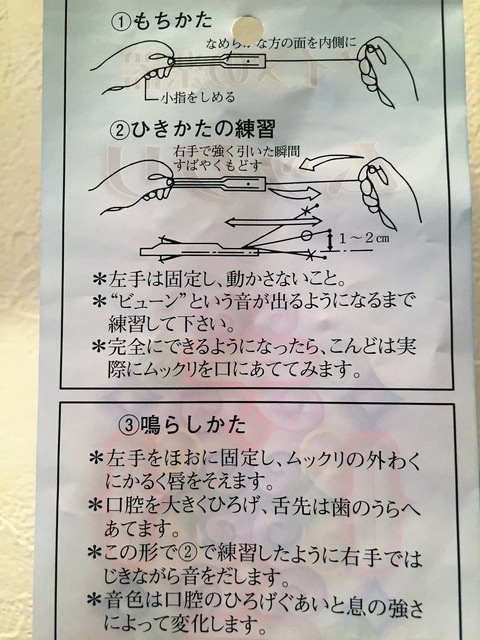 ①もちかた
なめらかな方の面を内側に
小指をしめる
②ひきかたの練習
右手で強く引いた瞬間
すばやくもどす
1～2㎝
＊左手は固定し、動かさないこと。
＊“ビューン”という音が出るようになるまで
練習して下さい。
＊完全にできるようになったら、こんどは実
際にムックリを口にあててみます。
③鳴らしかた
＊左手をほおに固定し、ムックリの外わく
にかるく唇をそえます。
＊口腔を大きくひろげ、舌先は歯のうらへ
あてます。
＊この形で②で練習したように右手では
じきながら音をだします。
＊音色は口腔のひろげぐあいと息の強さ
によって変化します。